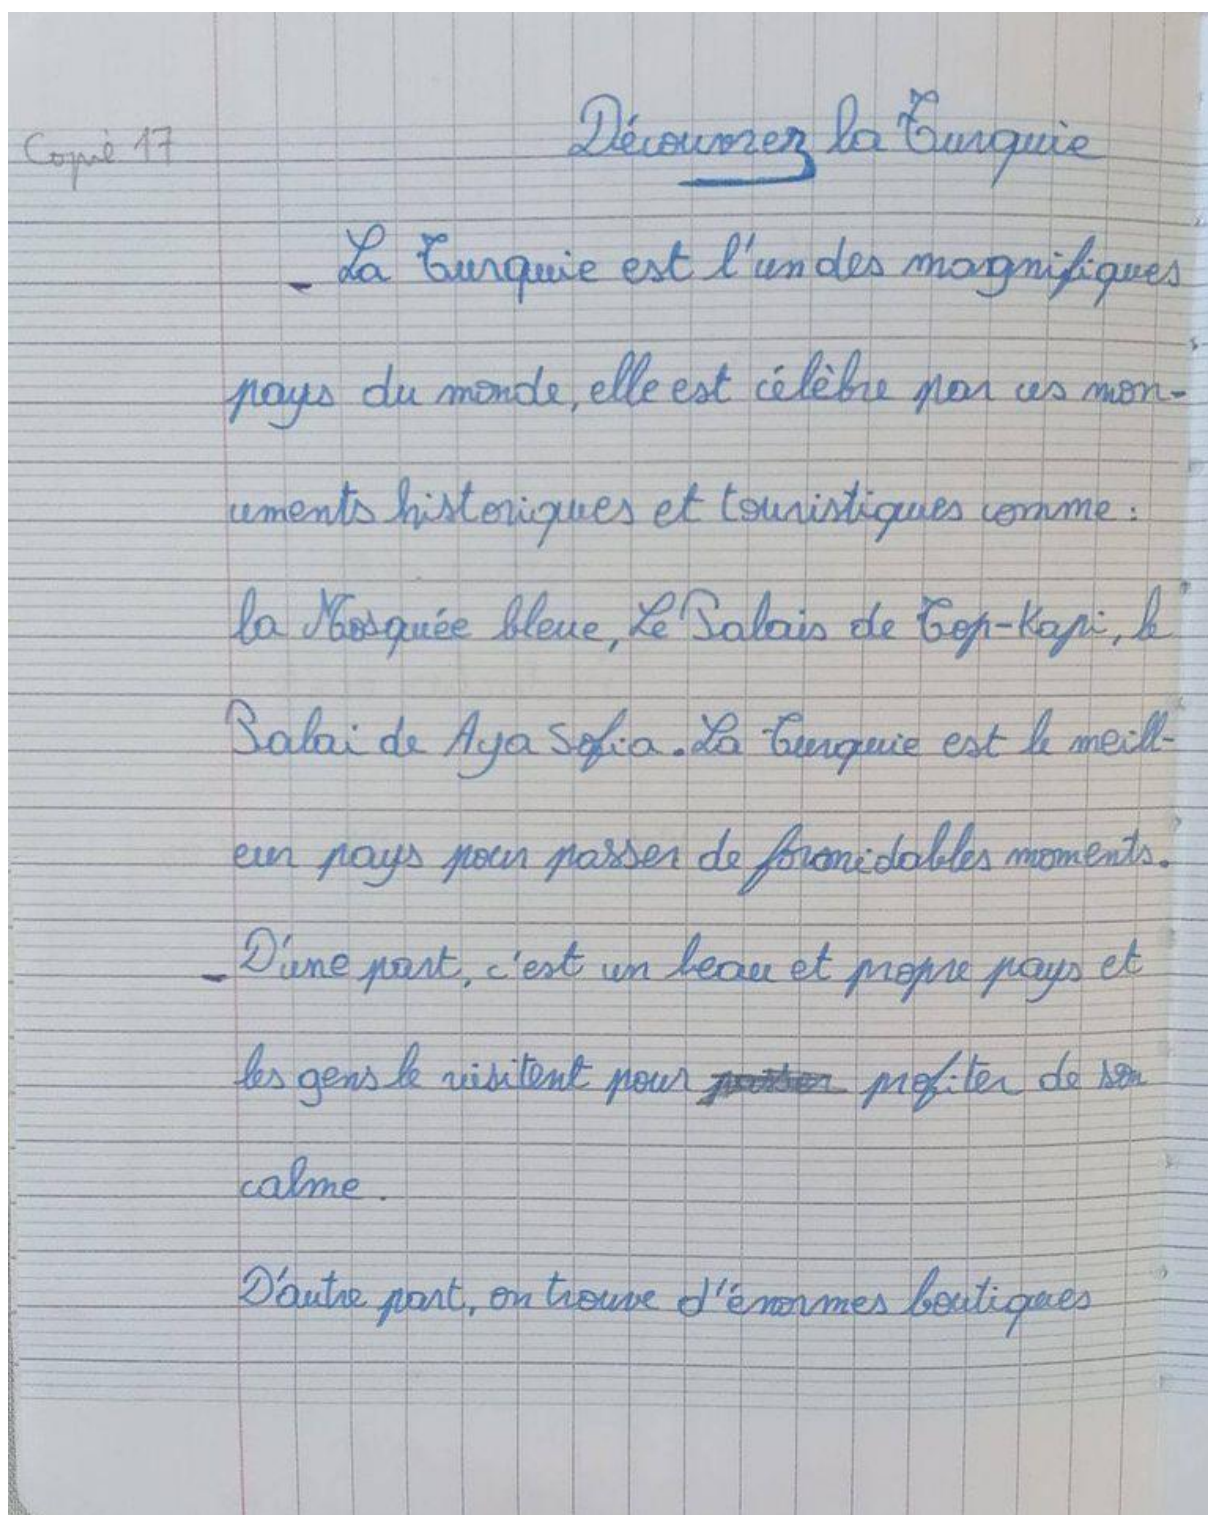 Copié 17
Découvrez la Turquie
- La Turquie est l'un des magnifiques
pays du monde, elle est célèbre par ces mon-
uments historiques et touristiques comme :
la Mosquée bleue, Le Palais de Top-Kapi, le
Palai de Aya Sofia. La Turquie est le meill-
eur pays pour passer de formidables moments.
- D'une part, c'est un beau et propre pays et
les gens le visitent pour profiter de son
calme.
D'autre part, on trouve d'énormes boutiques